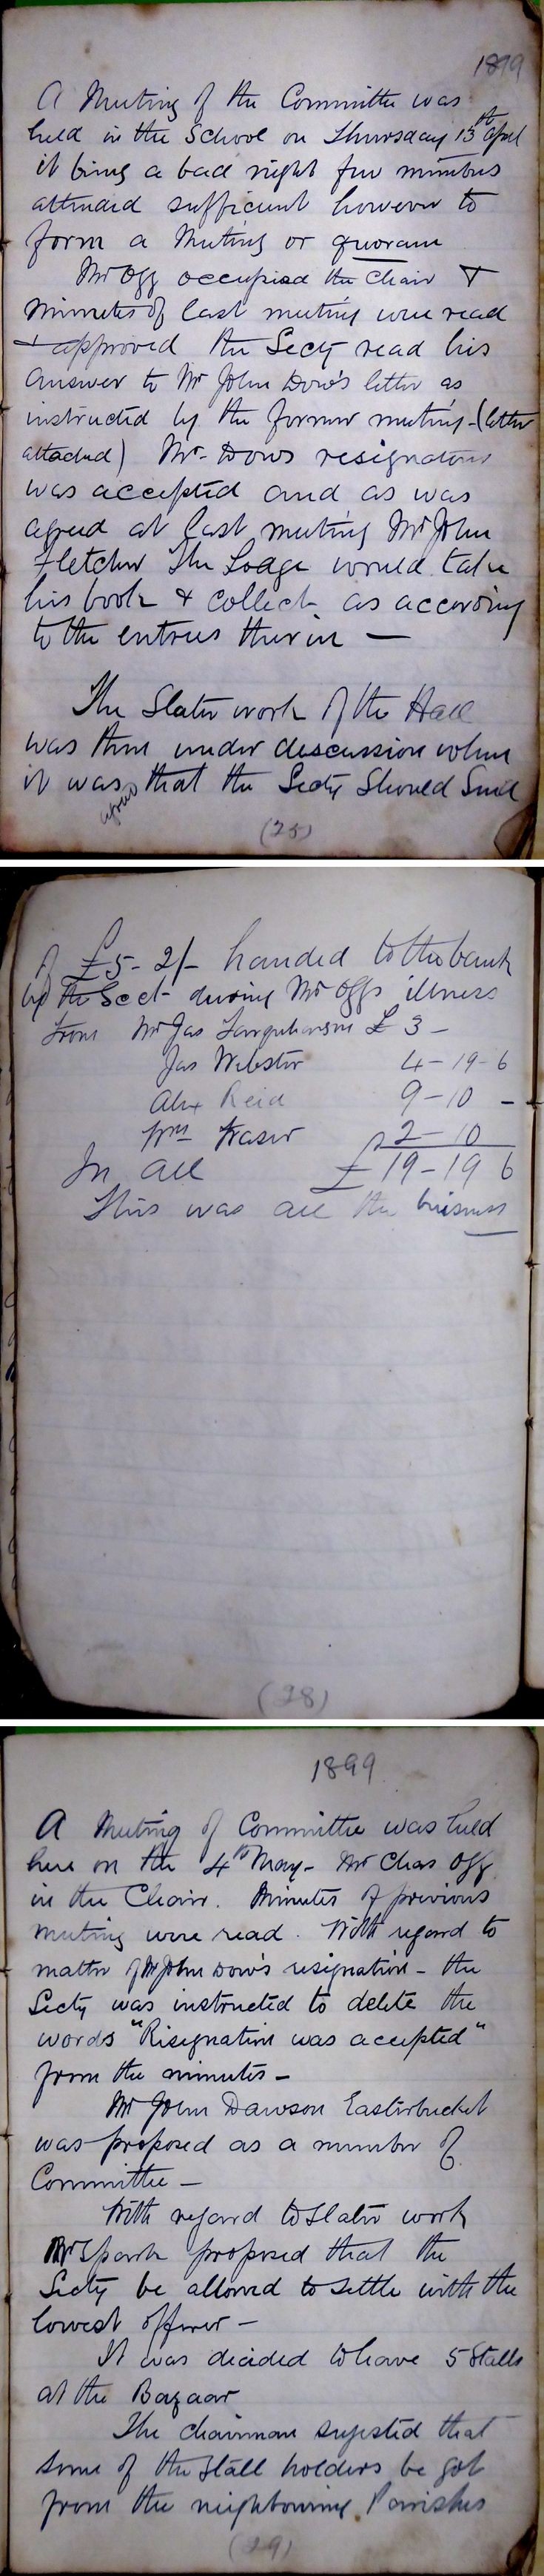 1899
A Meeting of the Committee was
held in the School on Thursday 13th April
it being a bad night few members
attended sufficient however to
form a Meeting or quorum
Mr Ogg occupied the Chair &
Minutes of last meeting were read
& approved the Secty read his
answer to Mr John Dow's letter as
instructed by the former meeting - (letter
attached) Mr. Dows resignation
was accepted and as was
agreed at last meeting Mr John
Fletcher The Lodge would take
his book & collect as according
to the entries therein —
The Slater work of the Hall
was then under discussion when
it was agreed that the Secty Should Send
(25)
of £5-2/- handed to the bank
by the Sect- during Mr Oggs illness
from Mr Jas Farquharson £ 3 -
Jas Webster 4-19-6
Alex Reid 9-10 -
Wm Fraser 2-10
In all £ 19-19 6
This was all the business
(28)
1899
A Meeting of Committee was held
here on the 4th May - Mr Chas Ogg
in the Chair. Minutes of previous
meeting were read. With regard to
matter of Mr John Dow's resignation - the
Secty was instructed to delete the
words "Resignation was accepted"
from the minutes -
Mr John Dawson Easterbucket
was proposed as a member of
Committee -
With regard to Slater work
Mr Spark proposed that the
Secty be allowed to settle with the
lowest offerer -
It was decided to have 5 Stalls
at the Bazaar
The chairman sugested that
some of the Stall holders be got
from the neighbouring Parishes
(29)